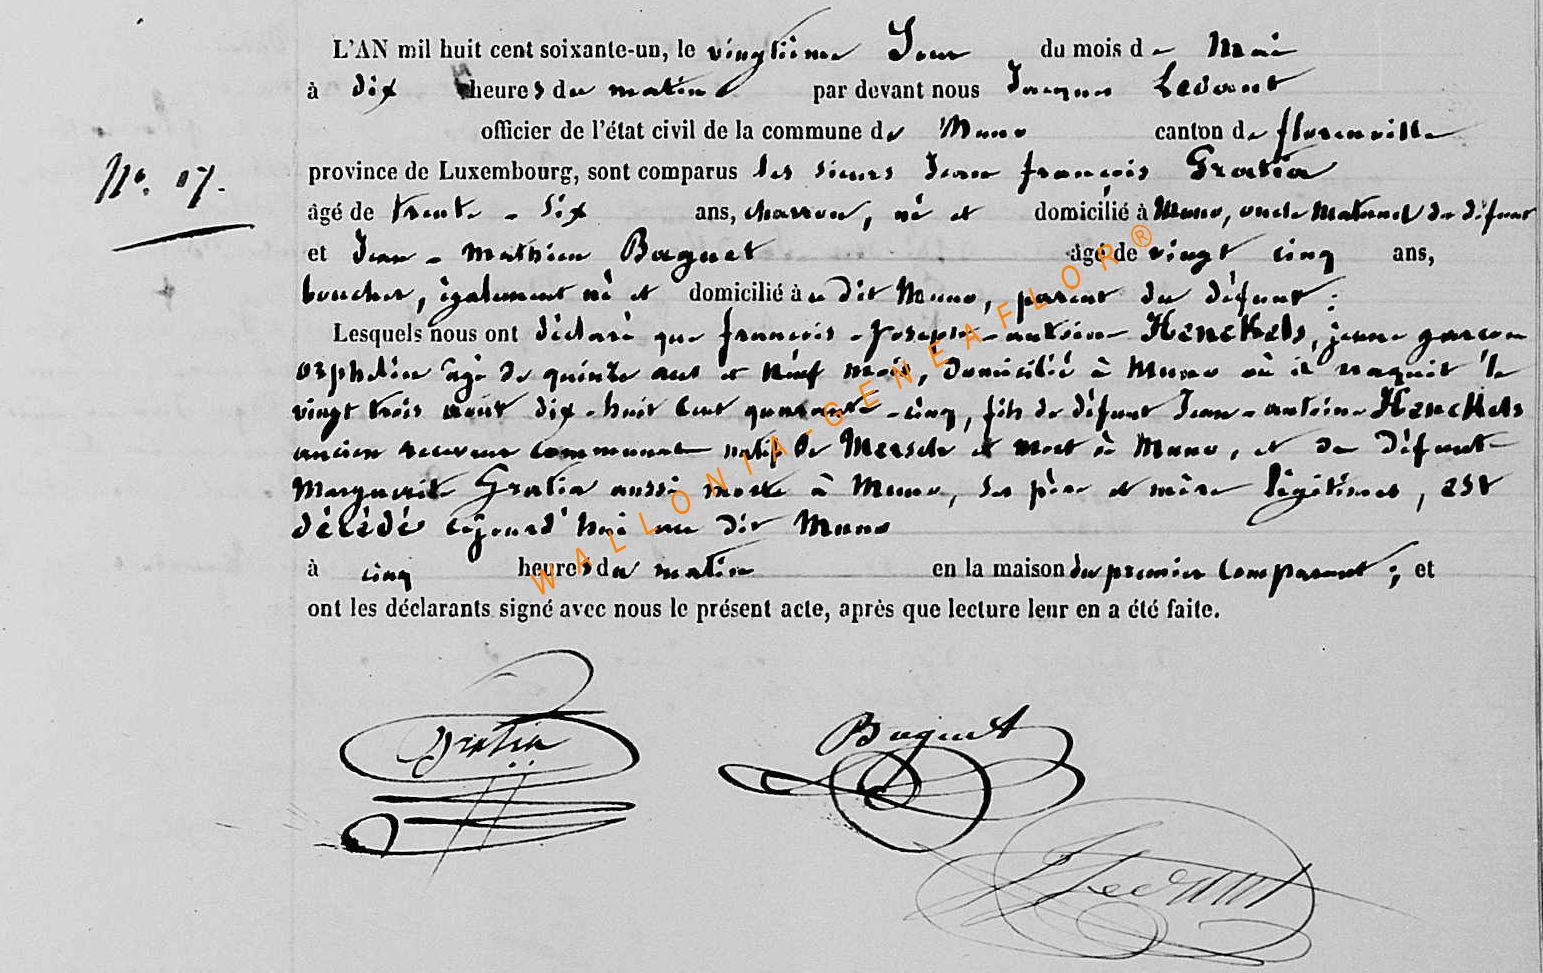 L'AN mil huit cent soixante-un, le vingtième Jour du mois de Mai
à dix heures du matin par devant nous Jacques Ledant
officier de l'état civil de la commune de Muno canton de florenville
province de Luxembourg, sont comparus les sieurs Jean françois Gratia
N.° 17.
âgé de trente-six ans, charron, né et domicilié à Muno, oncle maternel du défunt
et Jean-Mathieu Baguet âgé de vingt cinq ans,
boucher, également né et domicilié à ce dit Muno, parent du défunt;
Lesquels nous ont déclaré que françois-Joseph-antoine Henckels, jeune garçon
orphelin âgé de quinze ans et neuf mois, domicilié à Muno où il naquit le
vingt trois août dix-huit cent quarante-cinq, fils de défunt Jean-antoine Henckels
ancien receveur communal natif de Mersch et mort à Muno, et de défunte
Marguerite Gratia aussi morte à Muno, ses père et mère légitimes, est
décédé cejourd'hui au dit Muno
à cinq heures du matin en la maison du premier comparant; et
ont les déclarants signé avec nous le présent acte, après que lecture leur en a été faite.
Gratia
Baguet
J Ledant
WALLONIA-GENEAFLOR®